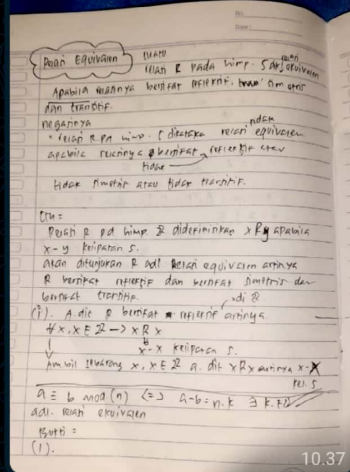 No.
Date
Relasi Equivalen
suatu
relasi
relasi R pada himp. S dkt. ekuivalen
Apabila relasinya bersifat reflektif, simetris
dan transitif.
negasinya
ndak
" relasi R pn himp. S dikatakan relasi equivalen
apabila relasinya bersifat reflektif atau
tidak
tidak simetris atau tidak transitif.
Ctn =
Relasi R pd himp. Z didefinisikan x R y apabila
x - y kelipatan 5.
akan ditunjukan R adl relasi equivalen artinya
R bersifat reflektif dan bersifat simetris dan
bersifat transitif.
(i). A. dit R bersifat reflektif artinya
di Z
∀ x, x ∈ Z → x R x
x - x kelipatan 5.
Ambil sebarang x, x ∈ Z a. dit x R x artinya x - x
kel. 5
a ≡ b mod (n) <=> a - b = n.k ∃ k ∈ Z
adl. relasi ekuivalen
Bukti =
(1).
10.37